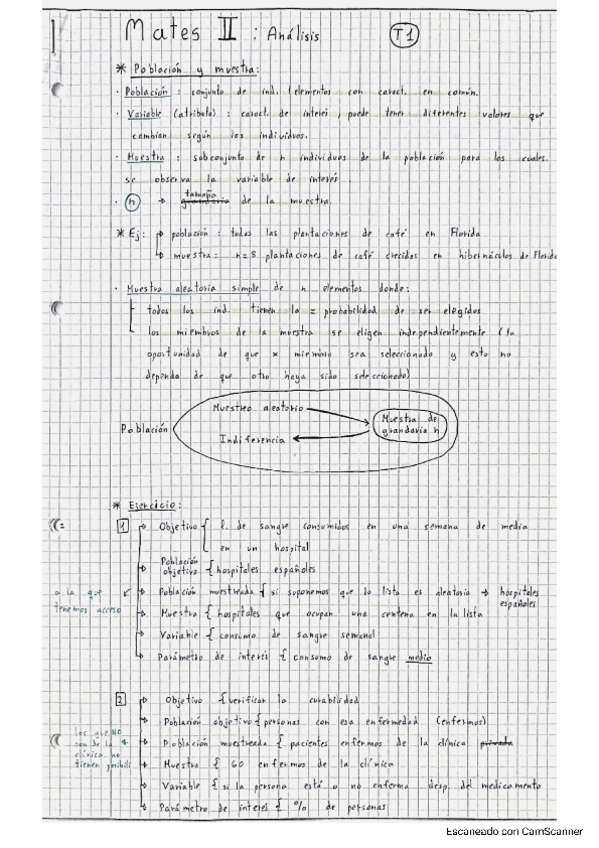 Mates II : Análisis T1
* Población y muestra:
· Población : conjunto de ind. / elementos con caract. en común.
· Variable (atributo) : caract. de interés, puede tener diferentes valores que
cambian según los individuos.
· Muestra : subconjunto de n individuos de la población para los cuales
se observa la variable de interés
tamaño
· n → grandaria de la muestra.
* Ej: población : todas las plantaciones de café en Florida
muestra : n=8 plantaciones de café crecidas en hibernáculos de Florida
· Muestra aleatoria simple de n elementos donde:
todos los ind. tienen la = probabilidad de ser elegidos
los miembros de la muestra se eligen independientemente (la
oportunidad de que x miembro sea seleccionado y esto no
dependa de que otro haya sido seleccionado)
Muestreo aleatorio
Población
Muestra de
grandaria n
Indiferencia
* Ejercicio:
1 Objetivo { l. de sangre consumidos en una semana de media
en un hospital
Población
objetivo { hospitales españoles
a la que
tenemos acceso
Población muestreada { si suponemos que la lista es aleatoria → hospitales
españoles
Muestra { hospitales que ocupan una centena en la lista
Variable { consumo de sangre semanal
Parámetro de interés { consumo de sangre medio
2 Objetivo { verificar la curabilidad
Población objetivo { personas con esa enfermedad (enfermos)
los que NO
son de la
clínica no
tienen posibili
Población muestreada { pacientes enfermos de la clínica privada
Muestra { 60 enfermos de la clínica
Variable { si la persona está o no enferma desp. del medicamento
Parámetro de interés { % de personas
Escaneado con CamScanner